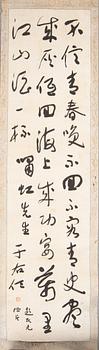 不信青春喚不回不容青史盡
成灰低回海上成功宴萬里
江山酒一杯 嘯虹先生 于右任